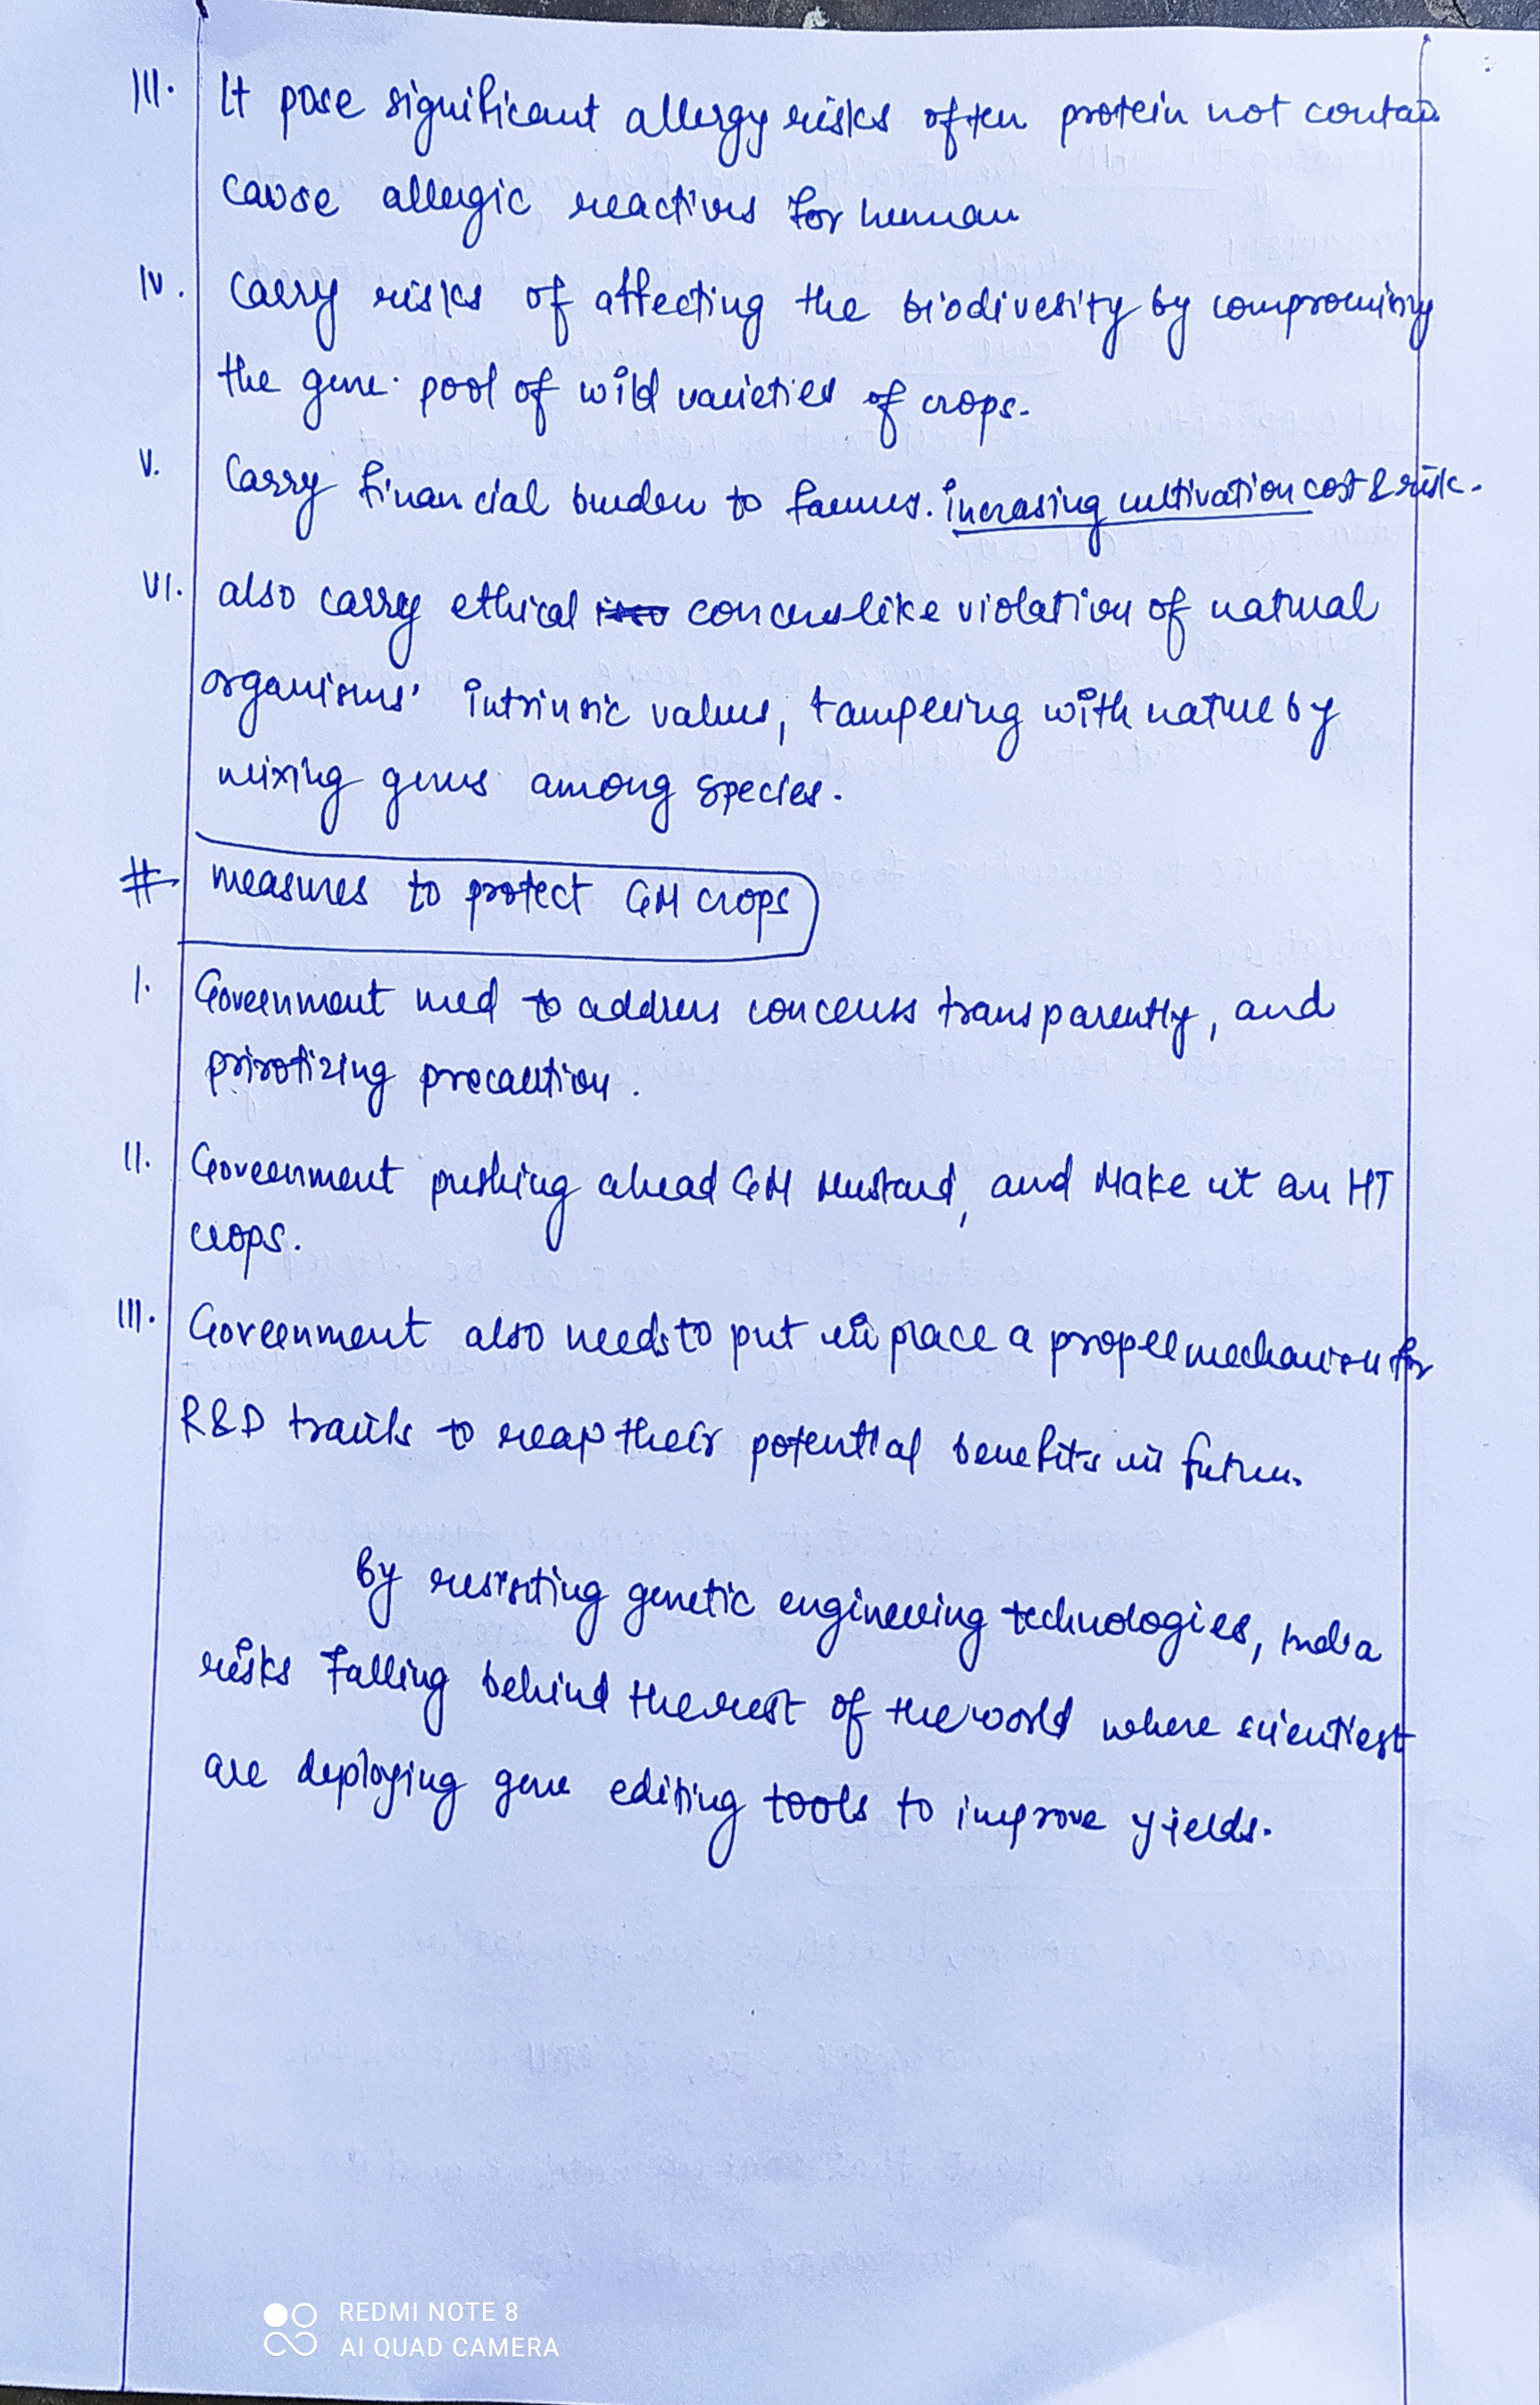 III. It pose significant allergy risks often protein not contain
cause allergic reactions for human
IV. Carry risks of affecting the biodivesity by compromising
the gene pool of wild varieties of crops.
V. Carry financial burden to farmers. increasing cultivation cost & risk.
VI. also carry ethical concerns like violation of natural
organisms' intrinsic values, tampering with nature by
mixing genes among species.
# measures to protect GM crops
I. Government need to address concerns transparently, and
prirotizing precaution.
II. Government pushing ahead GM Mustard, and Make it an HT
crops.
III. Government also needs to put in place a proper mechanism for
R&D trails to reap their potential benefits in future.
By resisting genetic engineering technologies, India
risks falling behind the rest of the world where scientiest
are deploying gene editing tools to improve yields.
REDMI NOTE 8
AI QUAD CAMERA